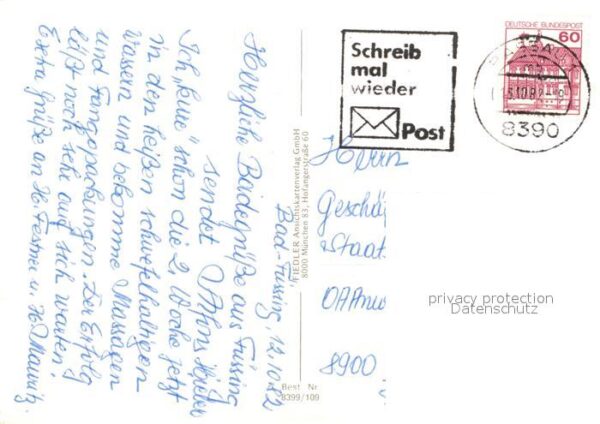 Bad-Füssing, 12.10.82
Herzliche Badegrüße aus Füssing
sendet Alfons
Ich „kure" schon die 2. Woche jetzt
in den heißen schwefelhaltigen
Wassern und bekomme Massagen
und Fangopackungen. Der Erfolg
läßt noch sehr auf sich warten!
Extra Grüße an H. Festner u. H. Mauritz.
FIEDLER Ansichtskartenverlag GmbH
8000 München 83, Hofangerstraße 60
Best. Nr.
8399/109
Schreib
mal
wieder
Post
DEUTSCHE BUNDESPOST
60
PASSAU 1
8390
Herrn
Geschä
Staat
8900
privacy protection
Datenschutz